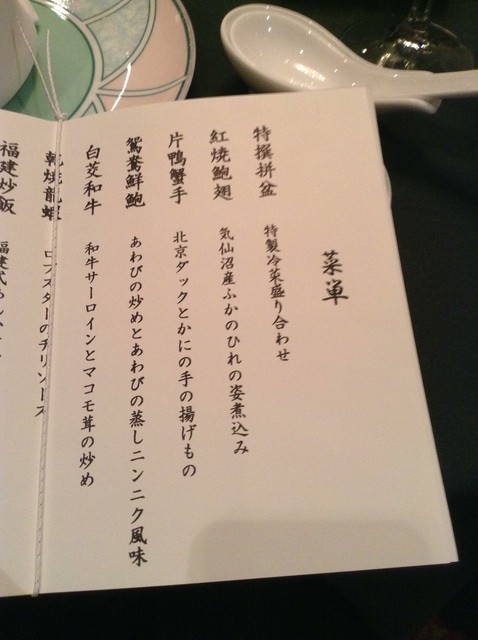 菜単
特撰拼盆 特製冷菜盛り合わせ
紅焼鮑翅 気仙沼産ふかのひれの姿煮込み
片鴨蟹手 北京ダックとかにの手の揚げもの
鴛鴦鮮鮑 あわびの炒めとあわびの蒸しニンニク風味
白茭和牛 和牛サーロインとマコモ茸の炒め
乾焼龍蝦 ロブスターのチリソース
福建炒飯 福建式あんかけ